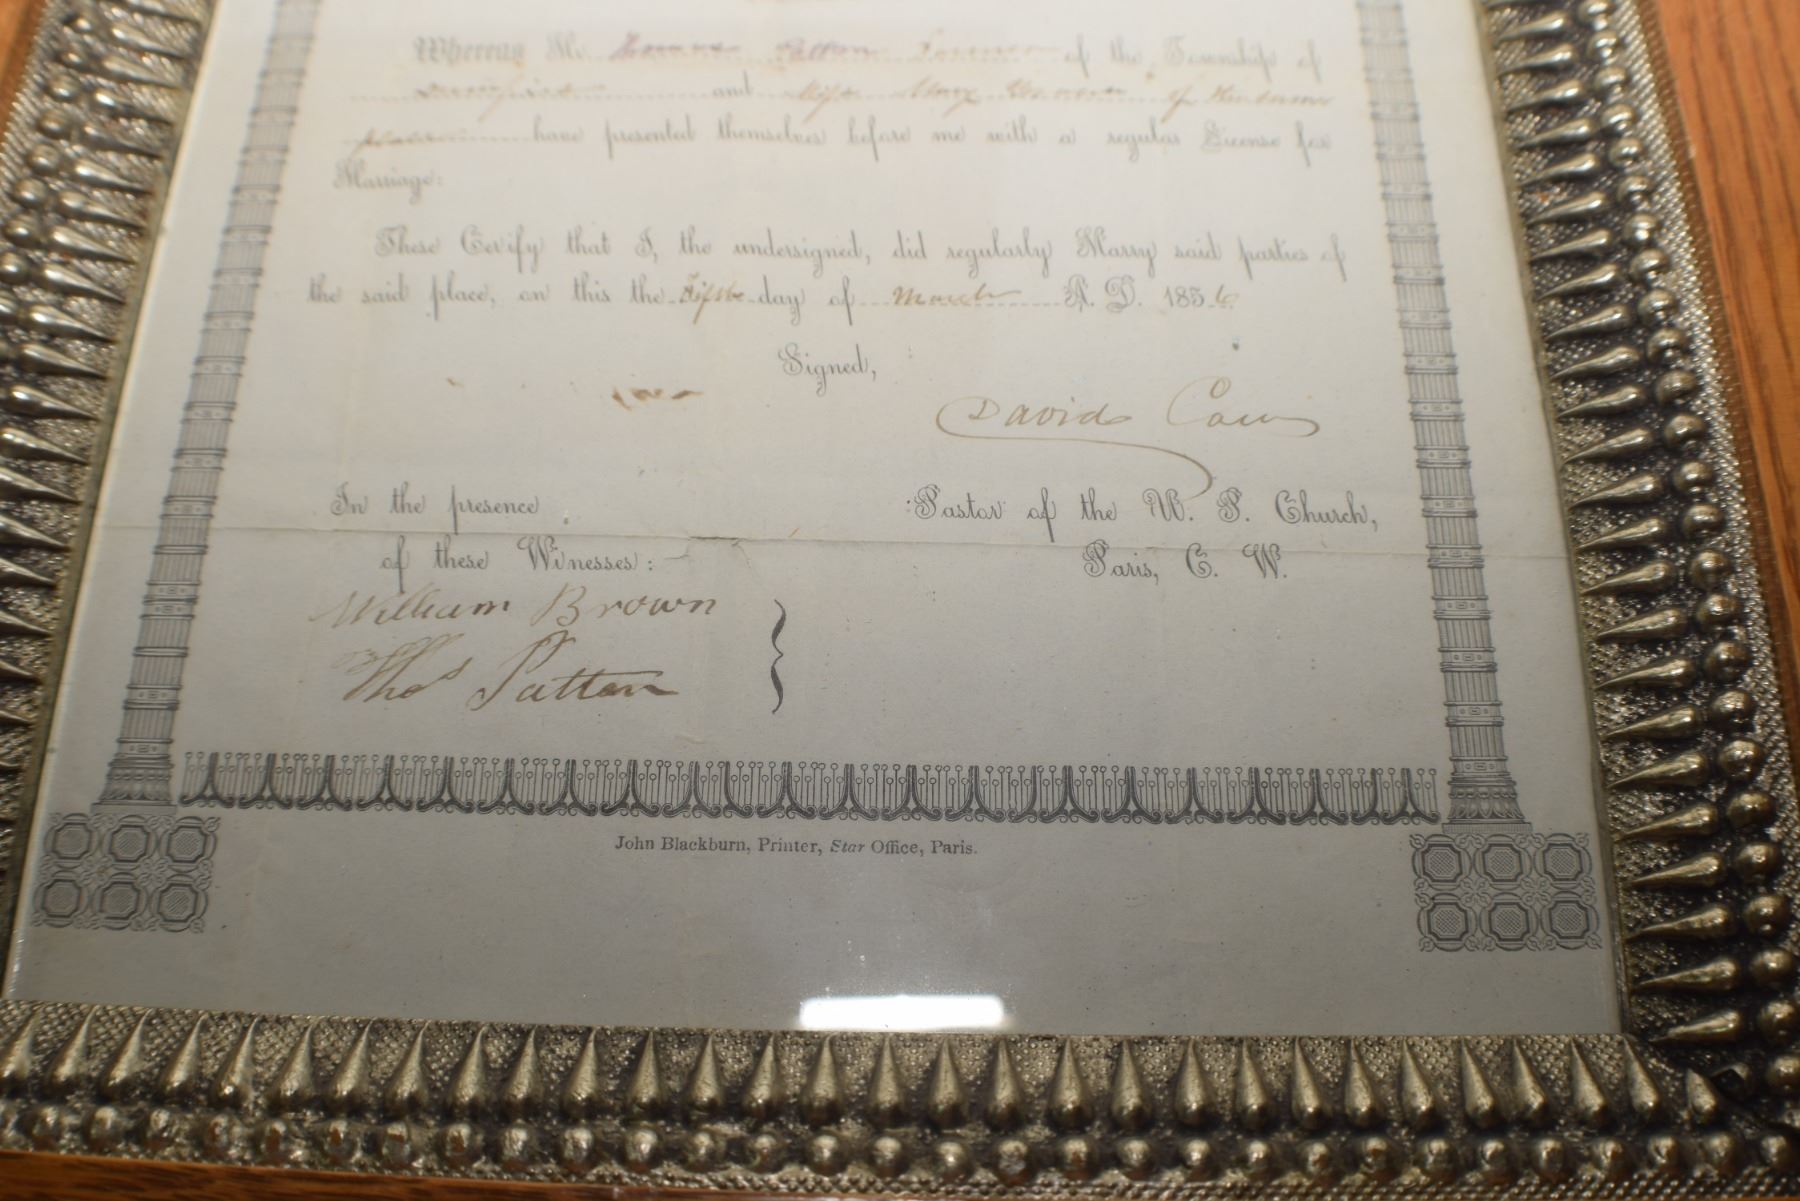 Whereas Mr. Patton of the Township of
and Miss Mary of
have presented themselves before me with a regular License for
Marriage:
These Certify that I, the undersigned, did regularly Marry said parties of
the said place, on this the Fifth day of March A. D. 1856
Signed,
David Caw
In the presence
Pastor of the W. P. Church,
of these Witnesses:
Paris, C. W.
William Brown
Thos Patton
John Blackburn, Printer, Star Office, Paris.